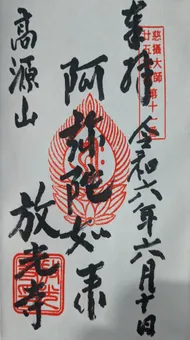 奉拝
令和六年六月十日
慈攝大師
廿五
第十一
阿弥陀如来
高源山
放光寺